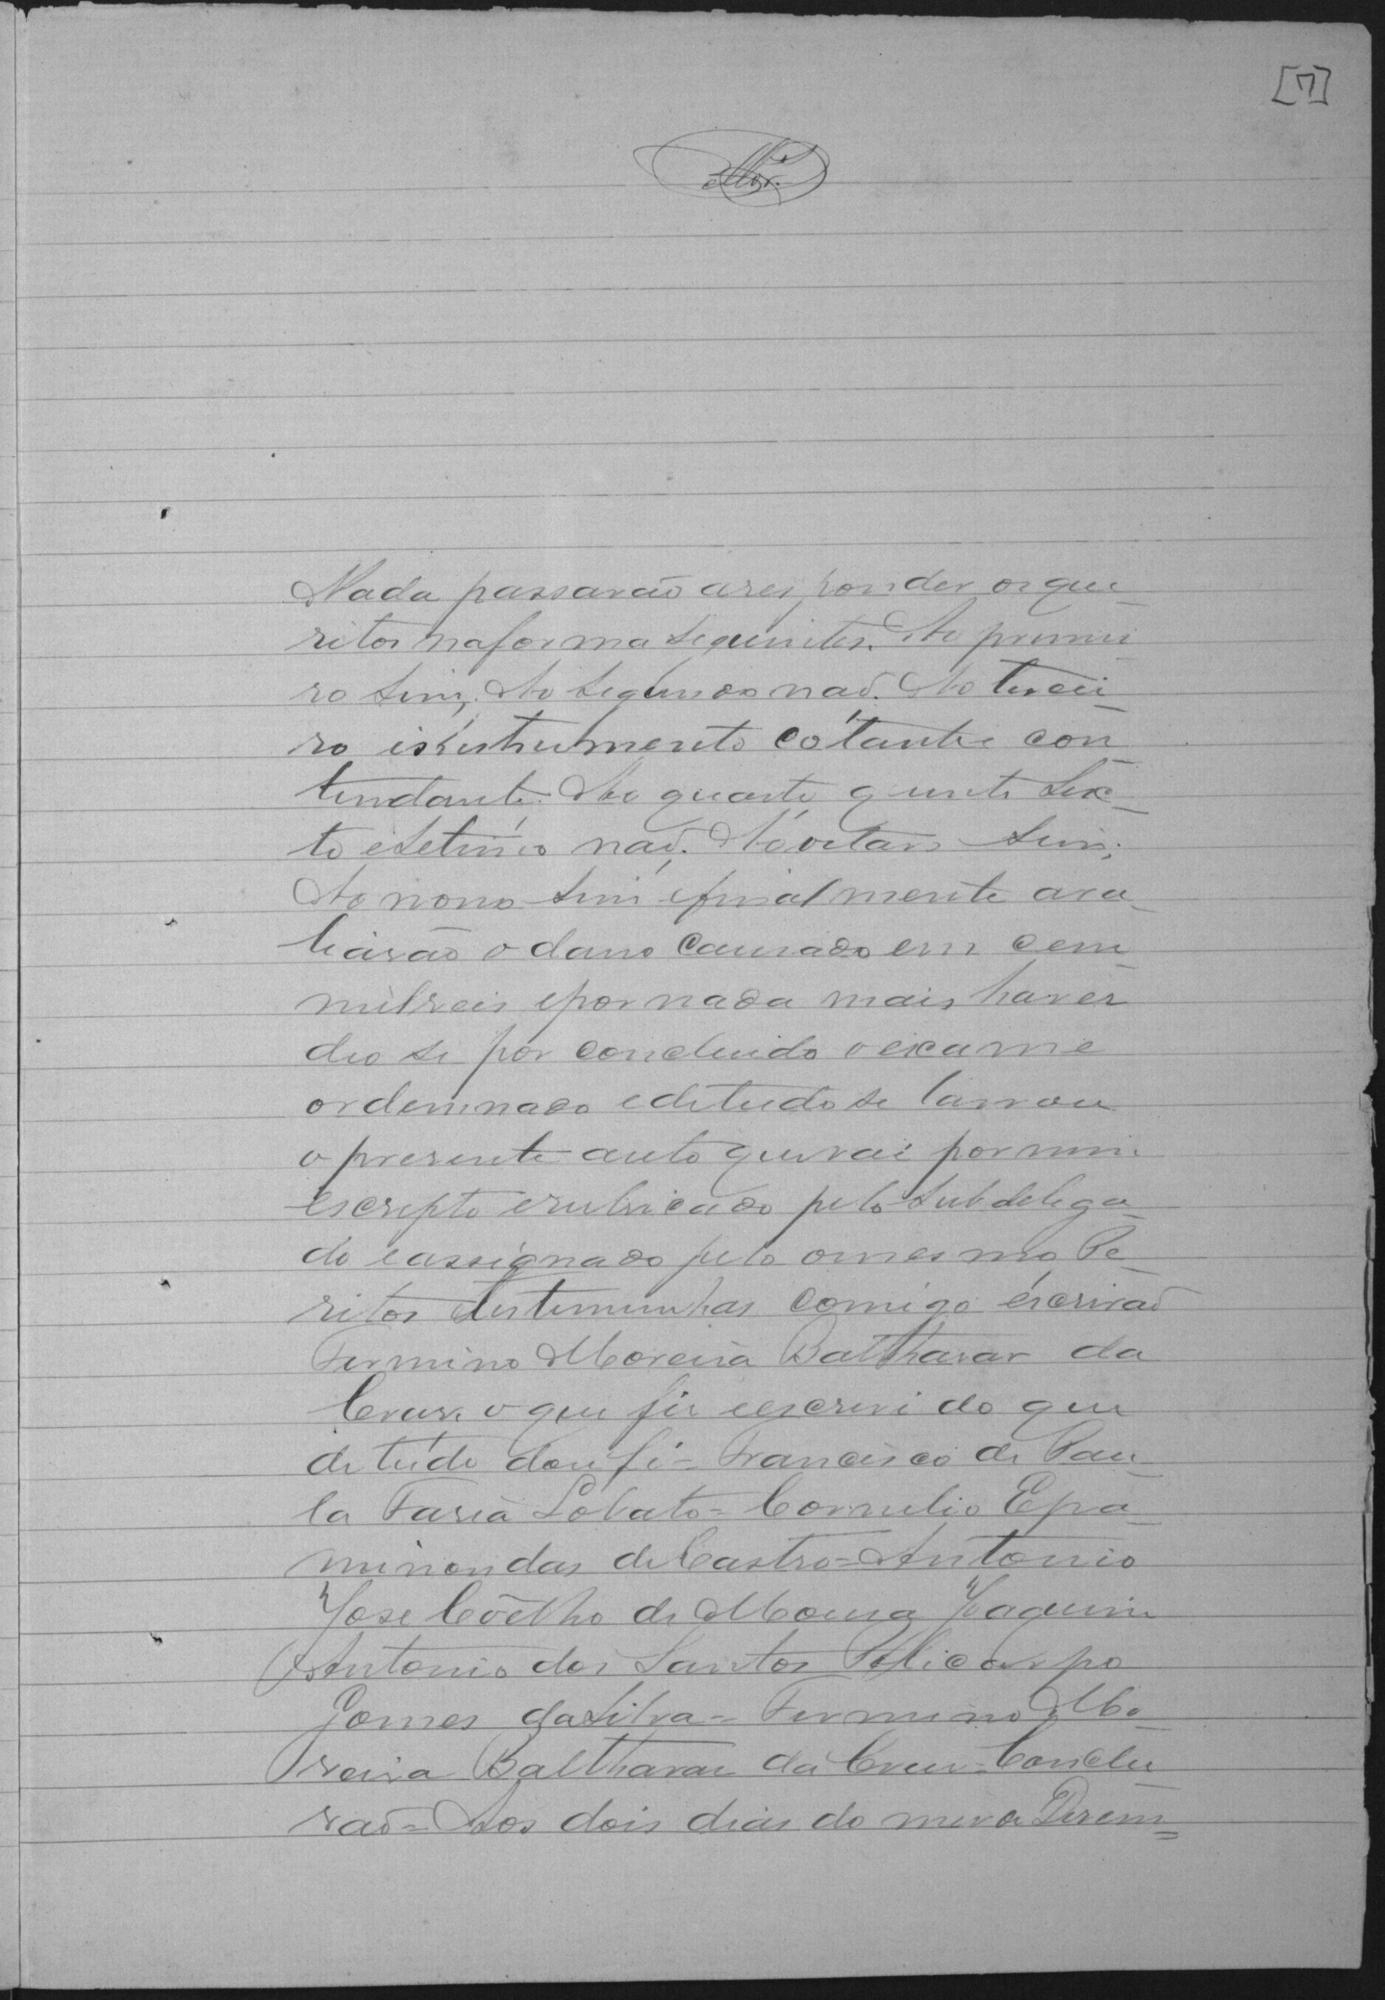 [7]
Nada passarão a responder os que-
ritos na forma seguintes. Ao primei
ro sim, Ao segundo naõ. Ao tercei-
ro isnstrumento cotante con-
tundante. Ao quarto quinto sex-
to e setimo naõ. Ao oitavo sim;
Ao nono sim e finalmente ava-
liarão o dano causado em cem
mil reis e por nada mais haver
deo se por concluido o exame
ordemnado e de tudo se lavrou
o presente auto que vai por mim
escrepto e rubricado pelo subdelega-
do e assignado pelo o mesmo Pe-
ritos testemunhas comigo escrivaõ
Fermino Moreira Balthazar da
Cruz o que fiz e escrevi do que
de tudo dou fé = Francisco de Pau-
la Faria Lobato = Cornelio Epa-
minondas de Castro = Antonio
Jose Coêlho de Moura Joaquim
Antonio dos Santos Policarpo
Gomes da Silva = Fermino Mo-
reira Balthazar da Cruz = Conclu-
zaõ = Aos dois dias do mez de Dezem=